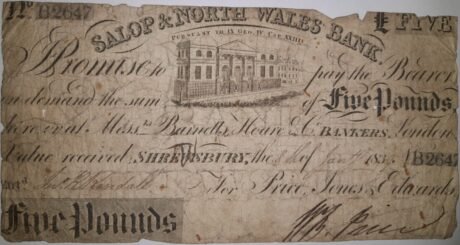 No. B2647 £ FIVE
SALOP & NORTH WALES BANK.
PURSUANT TO IX GEO. IV CAP XXIII
I Promise to pay the Bearer
on demand the sum of Five Pounds
here or at Mess.rs Barnetts, Hoare & Co. BANKERS, London
Value received SHREWSBURY, the B2647
For Price, Jones & Edwards
Five Pounds